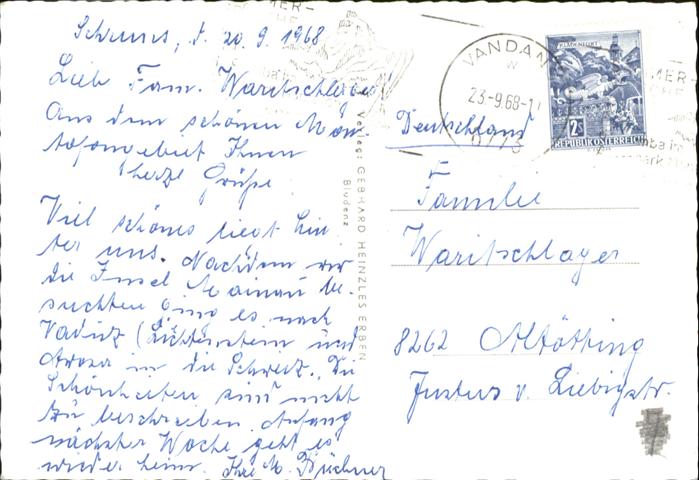 Schruns, d. 20.9.1968
Lieb. Fam. Waritschlager
Aus dem schönen Mon
tafongebiet Ihnen
herzl Grüße
Viel schönes liegt hin
ter uns. Nachdem wir
die Insel Mainau be-
suchten ging es nach
Vaduz (Lichtenstein und
Arosa in die Schweiz. Die
Schönheiten sind nicht
zu beschreiben. Anfang
nächster Woche geht es
wieder heim. Ihre M. Büchner
Verlag: GEBHARD HEINZLES ERBEN
Bludenz
VANDAN
23.-9.68-1
6773
KLAGENFURT
2 S
REPUBLIK ÖSTERREICH
Deutschland
Familie
Waritschlager
8262 Altötting
Justus v. Liebigstr.
7